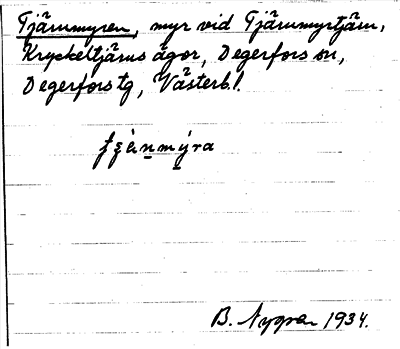 Tjärnmyren, myr vid Tjärnmyrtjärn,
Kryckeltjärns ägor, Degerfors sn,
Degerfors tg, Västerb. l.
B. Nygren 1934.